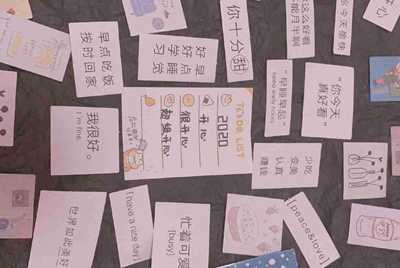 早点吃饭
按时回家
好好学习
早点睡觉
你十分甜
"早睡早起"
"你今天
真好看"
我很好。
I'm fine.
TO DO LIST
2020
开心
很开心
超级开心
少吃
变美
认真
赚钱
[have a nice day]
忙着可爱
[busy]
[peace&love]
世界如此美好